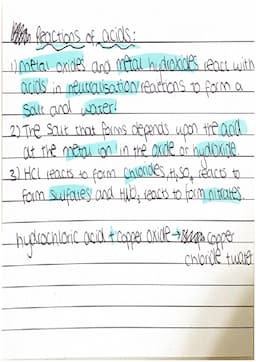 Reactions of acids:
1) metal oxides and metal hydroxides react with
acids in neutralisation reactions to form a
salt and water.
2) The salt that forms depends upon the acid
at the metal ion in the oxide or hydroxide
3) HCl reacts to form chlorides, H2SO4 reacts to
form sulfates and HNO3 reacts to form nitrates.
hydrochloric acid + copper oxide → copper
chloride + water